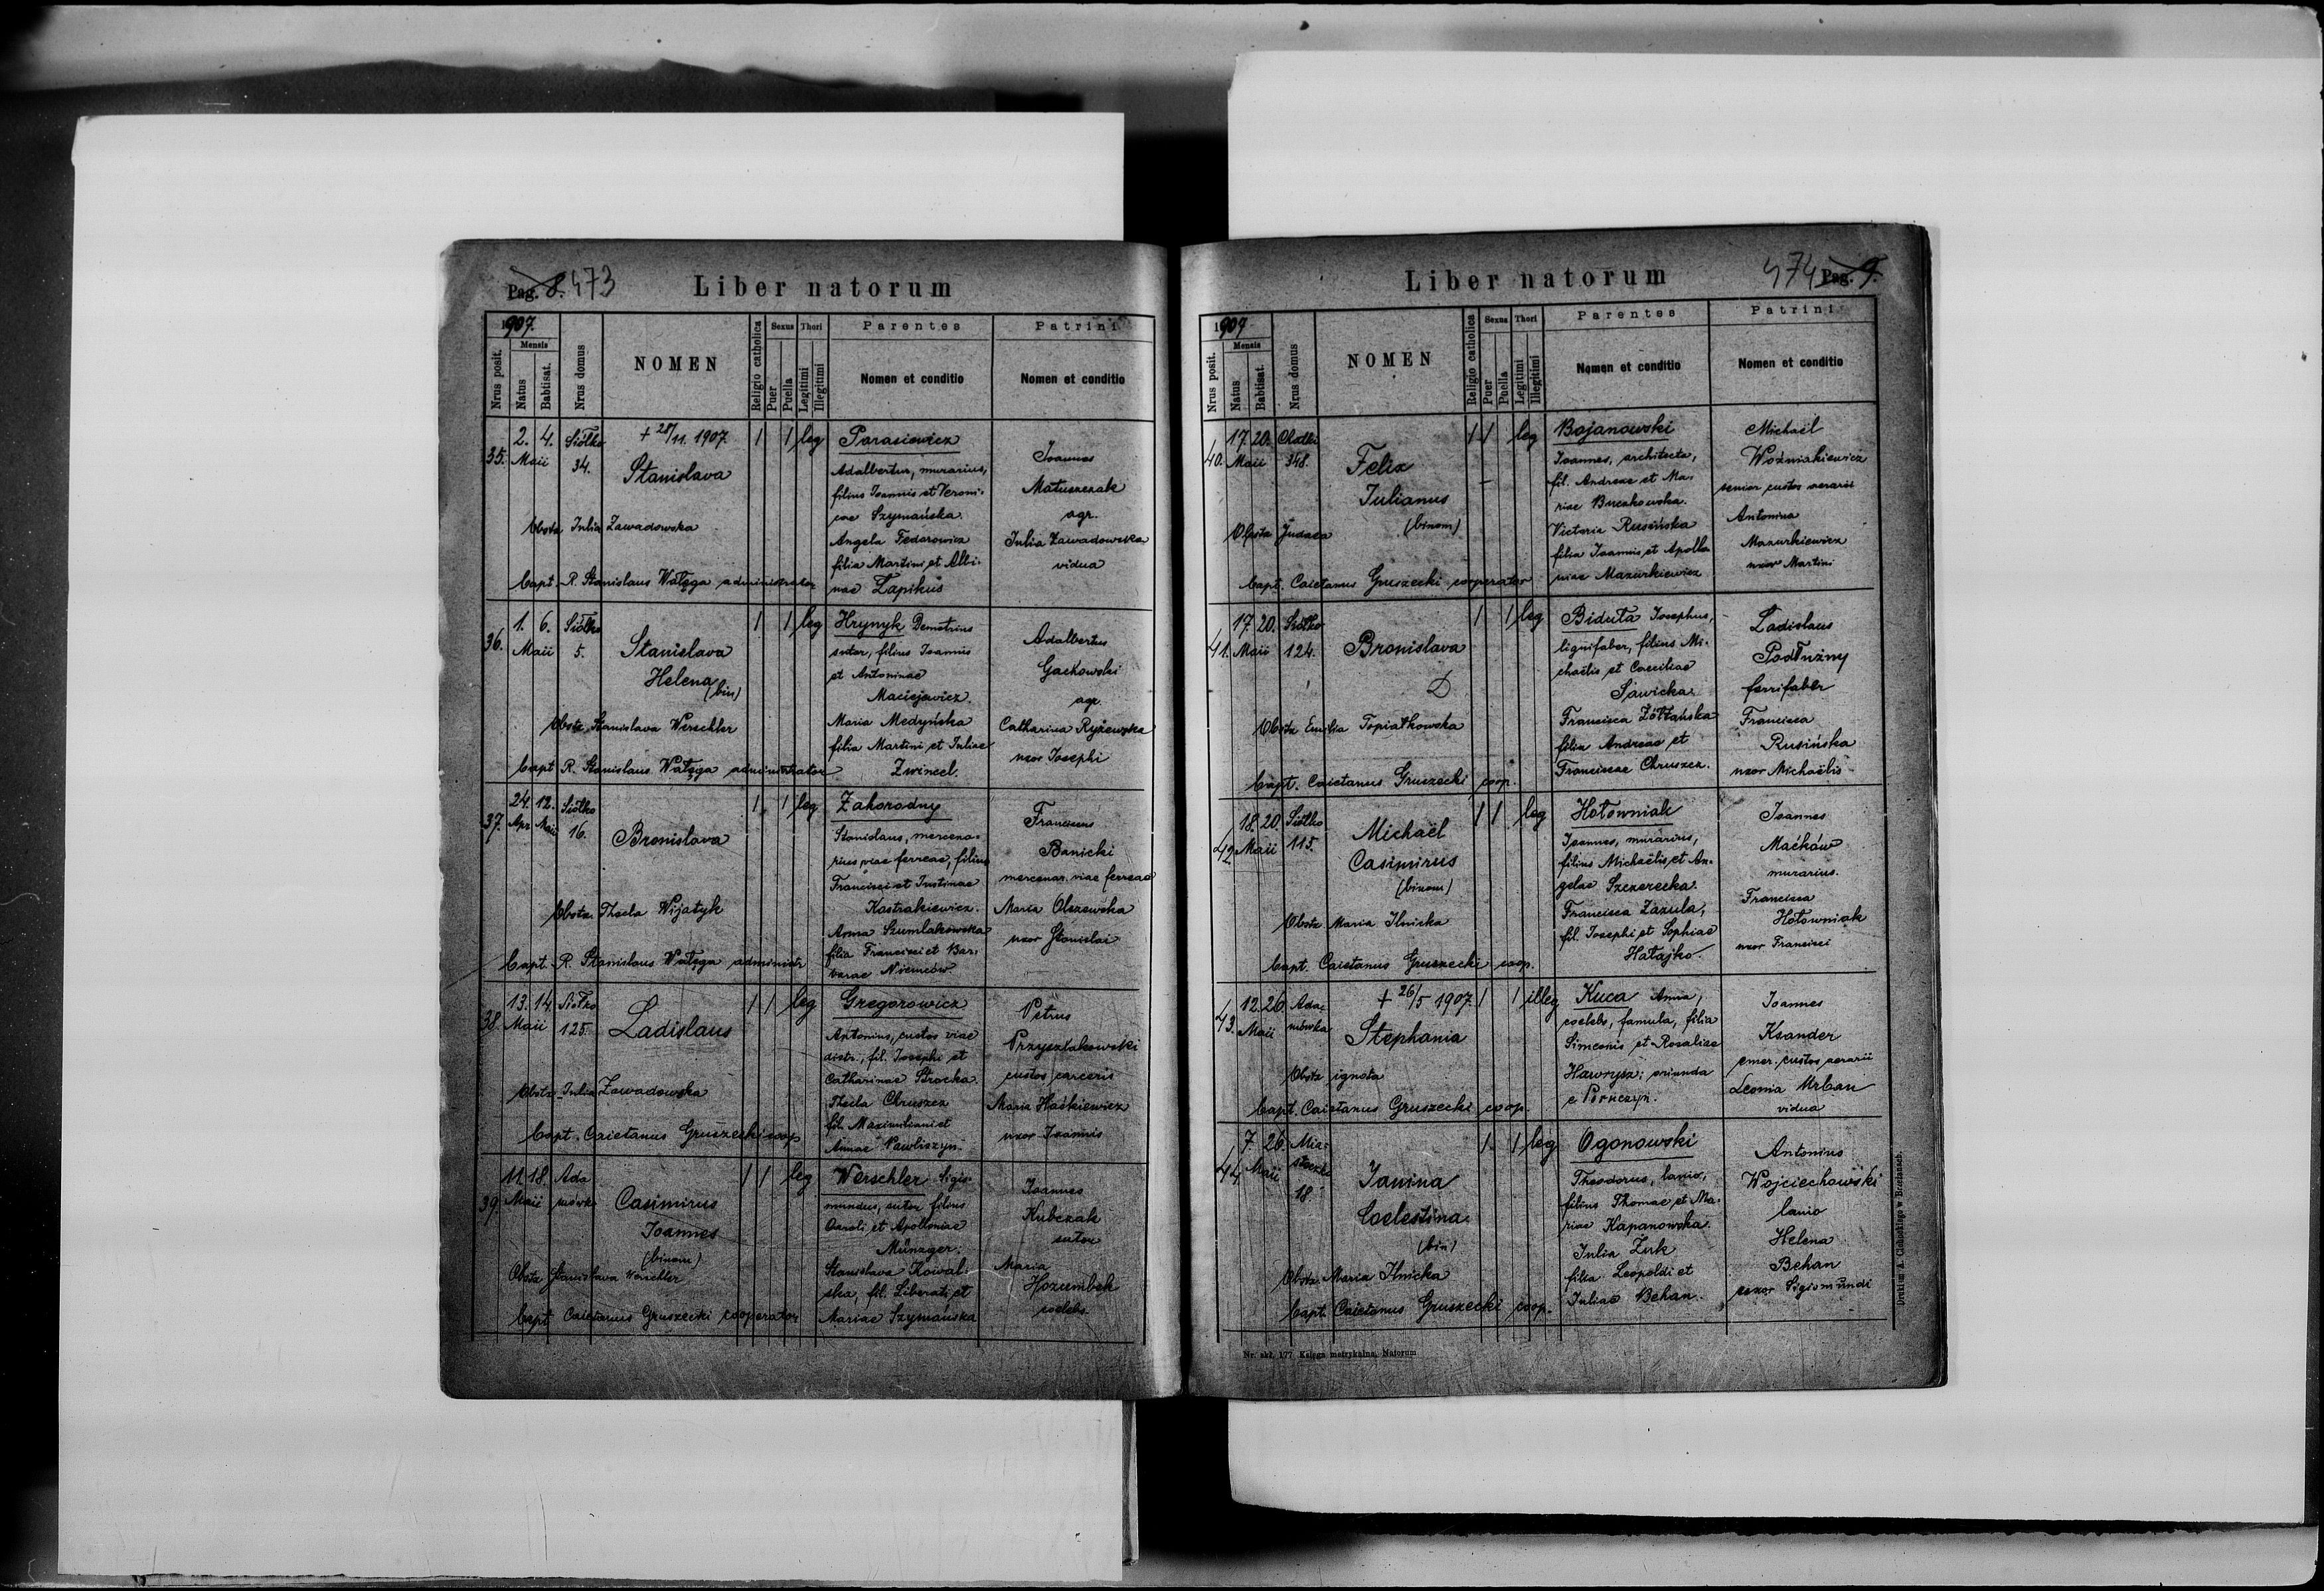 Pag. 8. 473
Liber natorum
1907.
Mensis
Nrus posit.
Natus
Babtisat.
Nrus domus
NOMEN
Religio catholica
Sexus
Puer
Puella
Thori
Legitimi
Illegitimi
Parentes
Nomen et conditio
Patrini
Nomen et conditio
35. 2. 4. Maii
Siółko 34.
+ 28/11. 1907
Stanislava
1 1 leg
Parasiewicz
Adalbertus, murarius,
filius Joannis et Veroni-
cae Szymańska.
Angela Fedorowicz
filia Martini et Albi-
nae Łapikus
Joannes
Matuszczak
agr.
Julia Zawadowska
vidua
Obstx Julia Zawadowska
bapt. R. Stanislaus Watęga administrator
36. 1. 6. Maii
Siółko 5.
Stanislava
Helena (bin)
1 1 leg
Hrynyk Demetrius
sutor, filius Joannis
et Antoninae
Maciejewicz.
Maria Medyńska
filia Martini et Juliae
Zwincel.
Adalbertus
Gackowski
agr.
Catharina Ryżewska
uxor Josephi
Obstx Stanislava Werschler
bapt R. Stanislaus Watęga administrator
37. 24. Apr. 12. Maii
Siółko 16.
Bronislava
1 1 leg
Zahorodny
Stanislaus, mercena-
rius viae ferreae, filius
Francisci et Justinae
Kostrakiewicz.
Anna Szumlakowska
filia Francisci et Bar-
barae Niemców
Franciscus
Banicki
mercenar. viae ferreae
Maria Olszewska
uxor Stanislai
Obstx Thecla Wijatyk
bapt. R. Stanislaus Watęga administr
38. 13. 14. Maii
Siółko 125.
Ladislaus
1 1 leg
Gregorowicz
Antonius, custos viae
distr., fil. Josephi et
Catharinae Strocka.
Thecla Chruszcz
fil. Maximiliani et
Annae Pawliszyn.
Petrus
Przyszlakowski
custos carceris
Maria Haśkiewicz
uxor Joannis
Obstx Julia Zawadowska
bapt. Caietanus Gruszecki coop
39. 11. 18. Maii
Adamówka
Casimirus
Joannes
(binom)
1 1 leg
Werschler Sigis-
mundus, sutor filius
Caroli et Apolloniae
Münzger.
Stanislava Kowal-
ska, fil. Liberati et
Mariae Szymańska
Joannes
Kubczak
sutor
Maria
Hozumbek
coelebs.
Obstx Stanislava Werschler
bapt Caietanus Gruszecki cooperator
474 Pag. 9.
Liber natorum
1907
Mensis
Nrus posit.
Natus
Babtisat.
Nrus domus
NOMEN
Religio catholica
Sexus
Puer
Puella
Thori
Legitimi
Illegitimi
Parentes
Nomen et conditio
Patrini
Nomen et conditio
40. 17. 20. Maii
348.
Felix
Julianus
(binom)
1 1 leg
Bojanowski
Joannes, architecta,
fil. Andreae et Ma-
riae Buczkowska.
Victoria Rusińska
filia Joannis et Apollo-
niae Mazurkiewicz
Michaël
Woźniakiewicz
senior custos aerarii
Antonina
Mazurkiewicz
uxor Martini
Obstx Judaea
bapt. Caietanus Gruszecki cooperator
41. 17. 20. Maii
Siółko 124.
Bronislava
1 1 leg
Biduta Josephus,
lignifaber, filius Mi-
chaëlis et Caeciliae
Sawicka.
Francisca Żółtańska
filia Andreae et
Franciscae Chruszcz.
Ladislaus
Podłużny
ferrifaber
Francisca
Rusińska
uxor Michaëlis
Obstx Emilia Topiatkowska
bapt. Caietanus Gruszecki coop.
42. 18. 20. Maii
Siółko 115.
Michaël
Casimirus
(binom)
1 1 leg
Hołowniak
Joannes, murarius,
filius Michaëlis et An-
gelae Szczerecka.
Francisca Zazula,
fil. Josephi et Sophiae
Hałajko.
Joannes
Maćków
murarius.
Francisca
Hołowniak
uxor Francisci
Obstx Maria Ilnicka
bapt. Caietanus Gruszecki coop.
43. 12. 26. Maii
Adamówka
+ 26/5 1907.
Stephania
1 1 illeg
Kuca Anna,
coelebs, famula, filia
Simeonis et Rosaliae
Hawrysz; oriunda
e
Joannes
Ksander
emer. custos aerarii
Leonia Urban
vidua
Obstx ignota
bapt. Caietanus Gruszecki coop.
44. 7. 26. Maii
Miasteczko 18.
Janina
Coelestina
(bin)
1. 1 leg
Ogonowski
Theodorus, lanio,
filius Thomae et Ma-
riae Kapanowska.
Julia Żuk
filia Leopoldi et
Juliae Behan.
Antonius
Wojciechowski
lanio
Helena
Behan
uxor Sigismundi
Obstx. Maria Ilnicka
bapt. Caietanus Gruszecki coop.
Nr. skł. 177 Księga metrykalna, Natorum